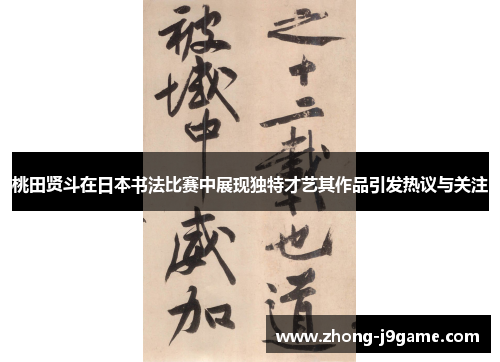 之十二载也道
被域中威加
桃田贤斗在日本书法比赛中展现独特才艺其作品引发热议与关注
www.zhong-j9game.com